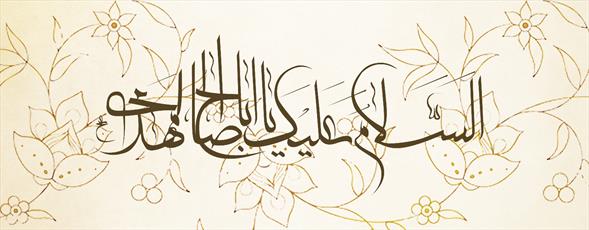 السَّلامُ عَلَیکَ یا اباصالح المهدی عج